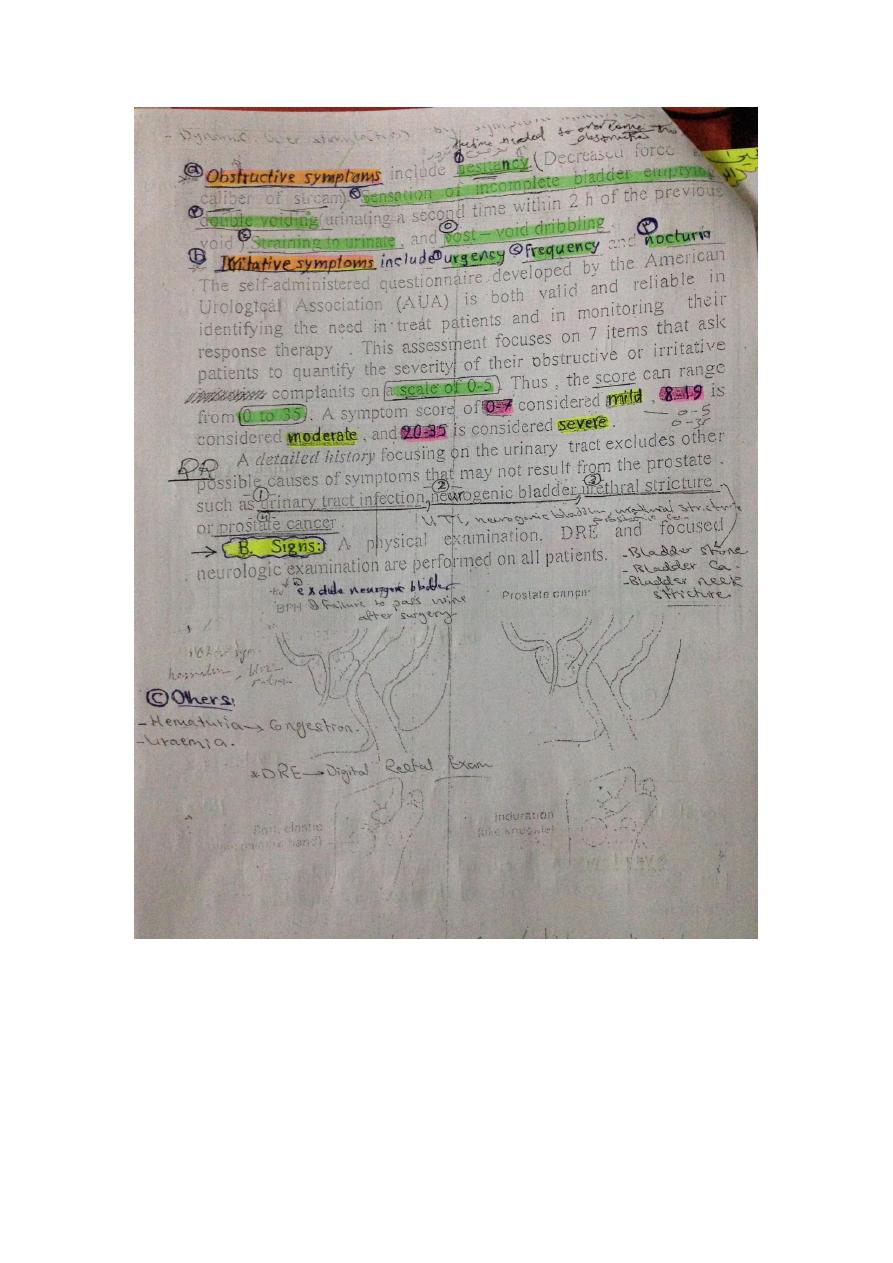 - Dynamic
time needed to overcome the
obstruction
ⓐ Obstructive symptoms include hesitancy, (Decreased force
caliber of stream) Sensation of incomplete bladder emptying
double voiding (urinating a second time within 2 h of the previous
void ) Straining to urinate , and post – void dribbling .
ⓑ Irritative symptoms include urgency frequency and nocturia
The self-administered questionnaire developed by the American
Urological Association (AUA) is both valid and reliable in
identifying the need in treat patients and in monitoring their
response therapy . This assessment focuses on 7 items that ask
patients to quantify the severity of their obstructive or irritative
complanits on a scale of 0-5 . Thus , the score can range
from 0 to 35 . A symptom score of 0-7 considered mild , 8-19 is
0-5
0-35
considered moderate , and 20-35 is considered severe .
A detailed history focusing on the urinary tract excludes other
possible causes of symptoms that may not result from the prostate .
such as ① urinary tract infection, ② neurogenic bladder, ③ urethral stricture
or prostate cancer .
UTI, neurogenic bladder, urethral stricture
→ B. Signs: A physical examination. DRE and focused
neurologic examination are performed on all patients.
- Bladder stone
- Bladder Ca.
- Bladder neck
stricture
exclude neurogenic bladder
BPH Failure to pass urine
after surgery
Prostate cancer
Ⓒ Others:
- Hematuria → Congestion.
- Uraemia.
* DRE → Digital Rectal Exam
Soft, elastic
Induration
(like knuckle)